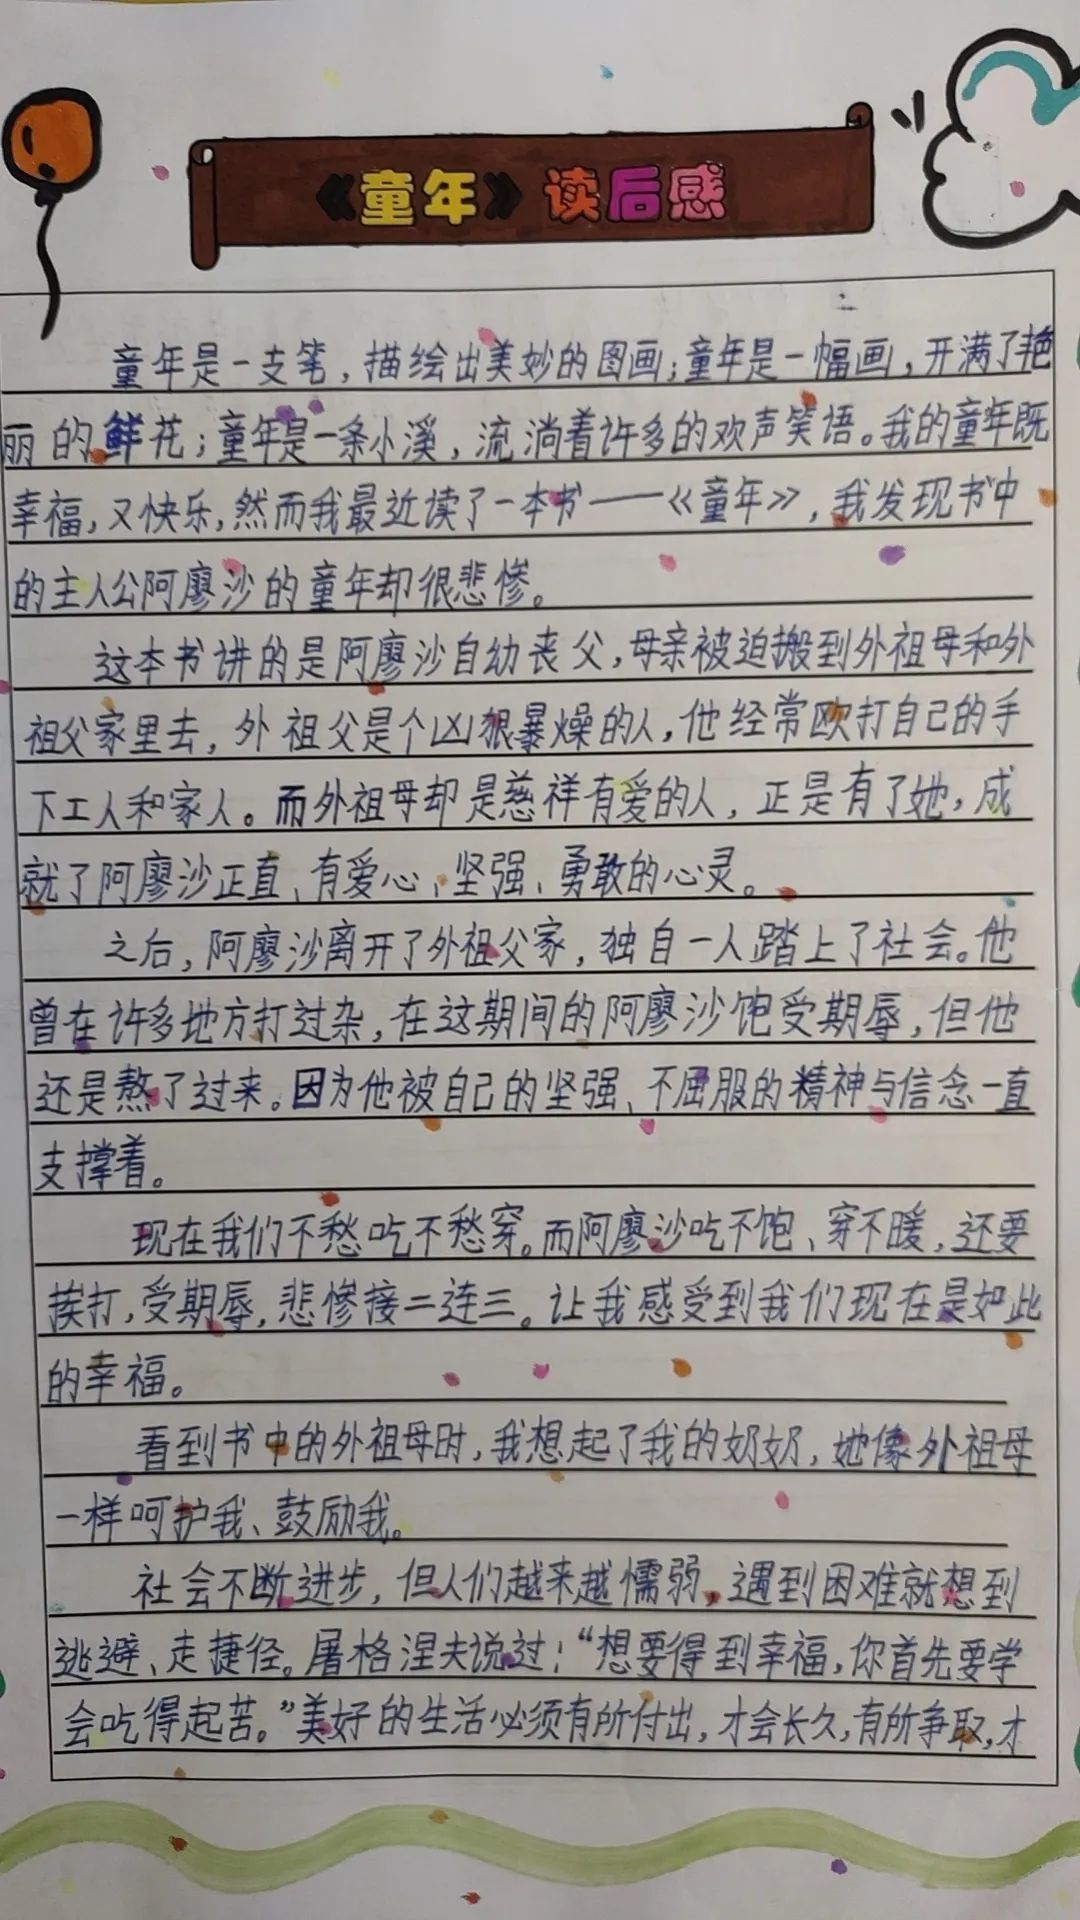 《童年》读后感
童年是一支笔，描绘出美妙的图画；童年是一幅画，开满了艳
丽的鲜花；童年是一条小溪，流淌着许多的欢声笑语。我的童年既
幸福，又快乐，然而我最近读了一本书——《童年》，我发现书中
的主人公阿廖沙的童年却很悲惨。
这本书讲的是阿廖沙自幼丧父，母亲被迫搬到外祖母和外
祖父家里去，外祖父是个凶狠暴燥的人，他经常欧打自己的手
下工人和家人。而外祖母却是慈祥有爱的人，正是有了她，成
就了阿廖沙正直、有爱心、坚强、勇敢的心灵。
之后，阿廖沙离开了外祖父家，独自一人踏上了社会。他
曾在许多地方打过杂，在这期间的阿廖沙饱受期辱，但他
还是熬了过来。因为他被自己的坚强、不屈服的精神与信念一直
支撑着。
现在我们不愁吃不愁穿。而阿廖沙吃不饱、穿不暖，还要
挨打，受期辱，悲惨接二连三。让我感受到我们现在是如此
的幸福。
看到书中的外祖母时，我想起了我的奶奶，她像外祖母
一样呵护我、鼓励我。
社会不断进步，但人们越来越懦弱，遇到困难就想到
逃避、走捷径。屠格涅夫说过：“想要得到幸福，你首先要学
会吃得起苦。”美好的生活必须有所付出，才会长久，有所争取，才